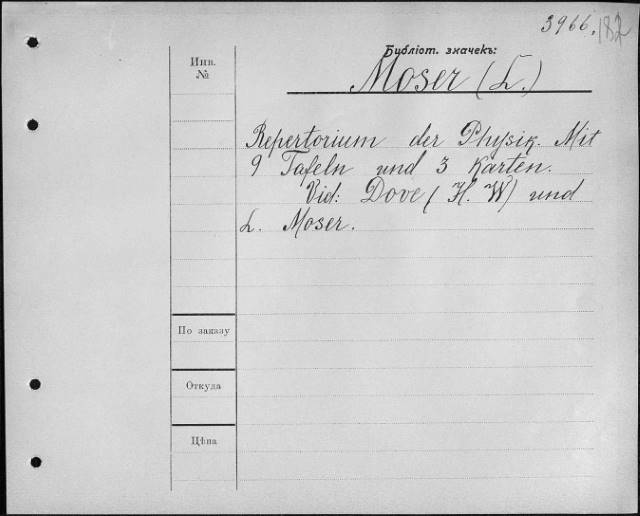 3966. 182
Библіот. значекъ:
Инв.
№
Moser (L.)
Repertorium der Physik. Mit
9 Tafeln und 3 Karten.
Vid: Dove (H. W) und
L. Moser.
По заказу
Откуда
Цѣна